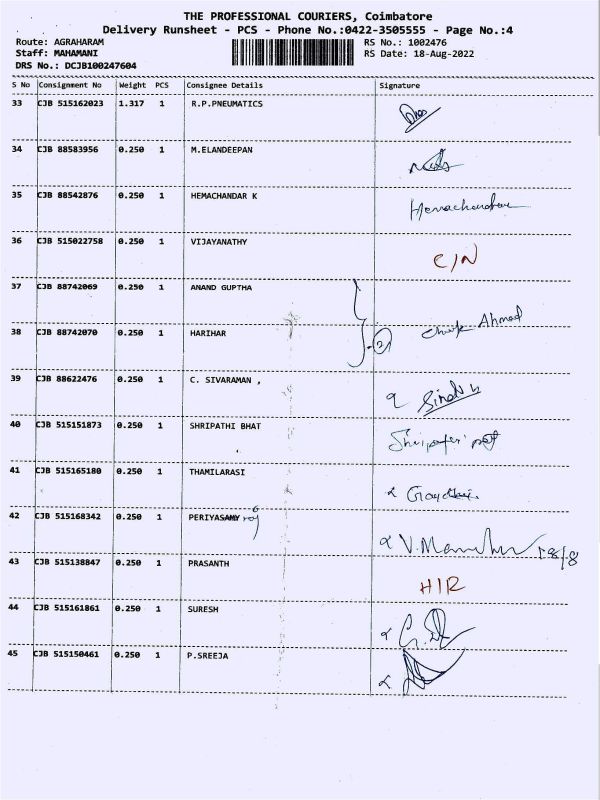 THE PROFESSIONAL COURIERS, Coimbatore
Delivery Runsheet - PCS - Phone No.:0422-3505555 - Page No.:4
Route: AGRAHARAM RS No.: 1002476
Staff: MAHAMANI RS Date: 18-Aug-2022
DRS No.: DCJB100247604
S No Consignment No Weight PCS Consignee Details Signature
33 CJB 515162023 1.317 1 R.P.PNEUMATICS
34 CJB 88583956 0.250 1 M.ELANDEEPAN
35 CJB 88542876 0.250 1 HEMACHANDAR K Hemachandar
36 CJB 515022758 0.250 1 VIJAYANATHY C/N
37 CJB 88742069 0.250 1 ANAND GUPTHA
38 CJB 88742070 0.250 1 HARIHAR 2 Ahmed
39 CJB 88622476 0.250 1 C. SIVARAMAN ,
40 CJB 515151873 0.250 1 SHRIPATHI BHAT
41 CJB 515165180 0.250 1 THAMILARASI
42 CJB 515168342 0.250 1 PERIYASAMY 18/8
43 CJB 515138847 0.250 1 PRASANTH H/R
44 CJB 515161861 0.250 1 SURESH
45 CJB 515150461 0.250 1 P.SREEJA